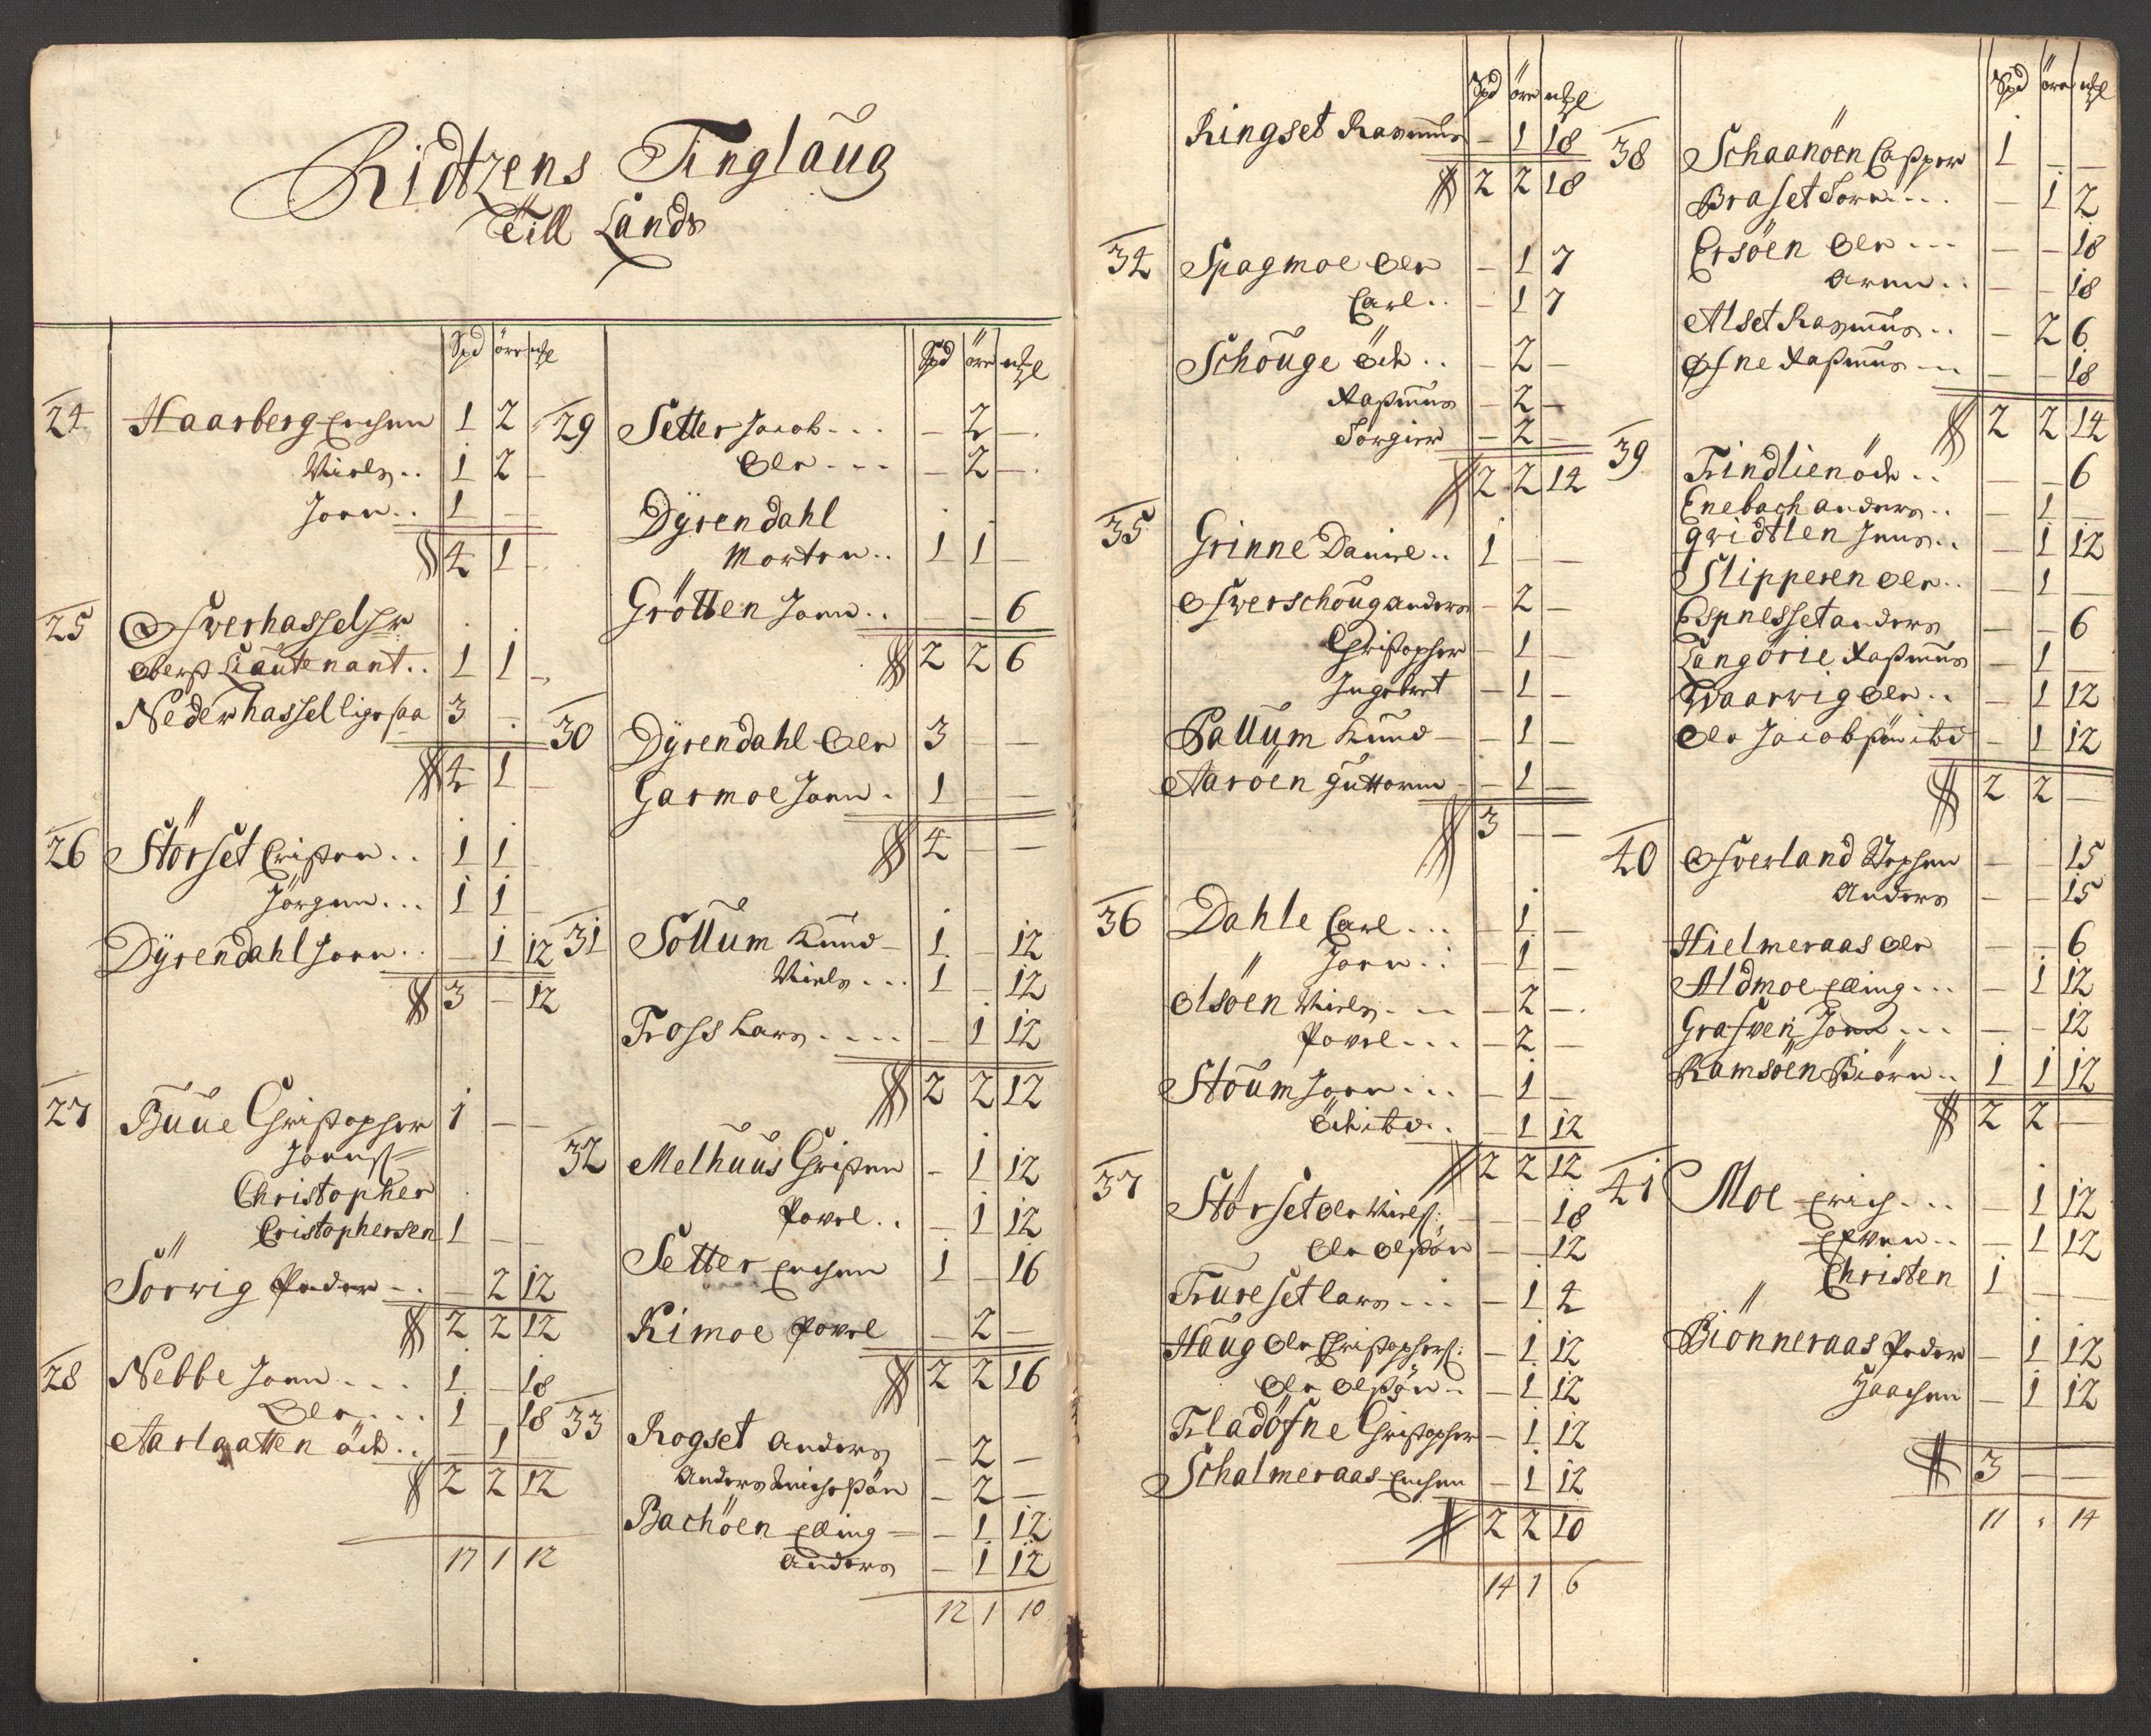 Ridtzens Tinglaug
Till Lands
Spd öre mkl
24 Haarberg Erichsen 1 2 -
Niels .. 1 2 -
Joen .. 1 - -
4 1 -
25 Ofwerhassel Hr
Oberst Lieutenant .. 1 1 -
Nederhassel ligesaa 3 - -
4 1 -
26 Störset Cristen .. 1 1 -
Jörgen ... 1 1 -
Dÿrendahl Joen .. - 1 12
3 - 12
27 Buue Christopher 1 - -
Joens
Christopher
Cristophersen 1 - -
Sorwig Peder - - 2 12
2 2 12
28 Nebbe Joen ... 1 - 18
Ole ... 1 - 18
Aarlaatten öde .. - 1
2 2 12
17 1 12
Spd öre mkl
29 Setter Jacob ... - 2 -
Ole ... - 2 -
Dÿrendahl
Morten .. 1 1 -
Grötten Joen .. - - 6
2 2 6
30 Dÿrendahl Ole 3 - -
Garmoe Joen . 1 - -
4 - -
31 Sollum Knud - 1 - 12
Niels ... 1 - 12
Foss Lars .... - 1 12
2 2 12
32 Melhuus Christen - 1 12
Powel .. - 1 12
Setter Erichsen 1 - 16
Kimoe Powel - 2 -
2 2 16
33 Rogset Anders - 2 -
Anders - 2 -
Bachöen Elling - - 1 12
Anders - 1 12
12 1 10
Spd öre mkl
Ringset Rasmus - 1 18
2 2 18
34 Spagmoe Ole - 1 7
Carl .. - 1 7
Schouge Öde .. - 2 -
Rasmus - 2 -
Torgier - 2 -
2 2 14
35 Grinne Daniel .. 1 - -
Ofwerschoug Anders - 2 -
Christopher - 1 -
Ingebret - 1 -
Pallum Knud - - 1 -
Aaröen Guttorm - 1 -
3 - -
36 Dahle Carl ... - 1 -
Joen .. - 1 -
Olsöen Niels ... - 2 -
Powel ... - 2 -
Stoum Joen ... - 1 -
Öde ibd .. - 1 12
2 2 12
37 Störset Ole Niels: - - 18
Ole Olsön - - 12
Fureset Lars ... - 1 4
Haug Ole Christophers: - 1 12
Ole Olsön - - 1 12
Fladöfne Christopher - 1 12
Schalmeraas Erichsen - 1 12
2 2 10
14 1 6
Spd öre mkl
38 Schaanöen Casper 1 - -
Braset Tore ... - 1 2
Ersöen Ole ... - - 18
Aren .. - - 18
Alset Rasmus .. - 2 6
Øfne Rasmus ... - - 18
2 2 14
39 Trindlien öde .. - - 6
Enebach Anders .. - 1 -
Gridtlen Jens .. - 1 12
Slipperen Ole .. - 1 -
Espnesset Anders - - 6
Langörie Rasmus - 1 -
Waarwig Ole .. - 1 12
Ole Jacobsön ibd - 1 12
2 2 -
40 Ofwerland Stephen - - 15
Anders - - 15
Hielmeraas Ole - - 6
Aldmoe Elling ... - 1 12
Grafwen Joen ... - - 12
Ramsöen Biörn .. 1 1 12
2 2 -
41 Moe Erich ... - 1 12
Efwen .. - 1 12
Christen 1 - -
Biönneraas Peder - 1 12
Haachen - 1 12
3 - -
11 . 14